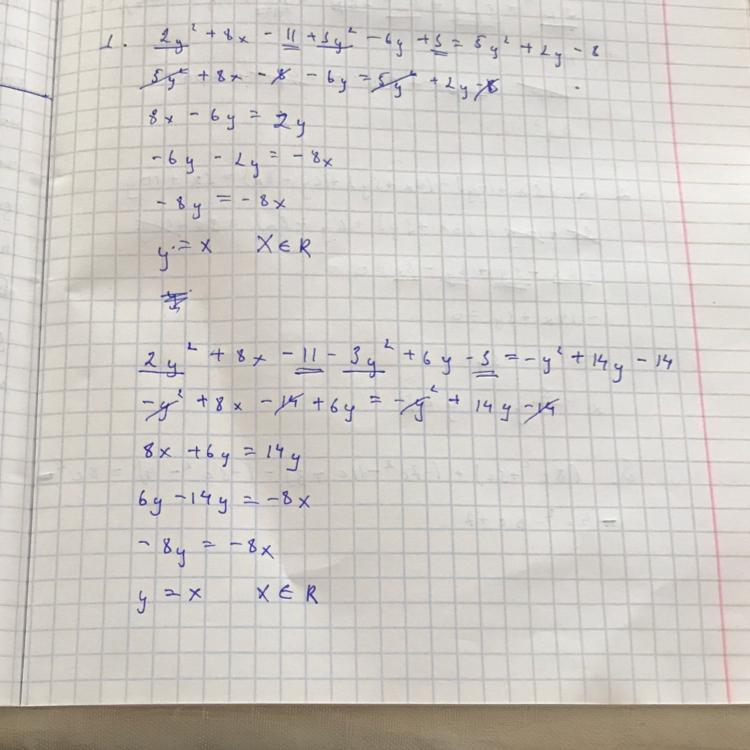 1. 2y² + 8x - 11 + 3y² - 6y + 3 = 5y² + 2y - 8
5y² + 8x - 8 - 6y = 5y² + 2y - 8
8x - 6y = 2y
-6y - 2y = -8x
-8y = -8x
y = x X ∈ R
2y² + 8x - 11 - 3y² + 6y - 3 = -y² + 14y - 14
-y² + 8x - 14 + 6y = -y² + 14y - 14
8x + 6y = 14y
6y - 14y = -8x
-8y = -8x
y = x X ∈ R